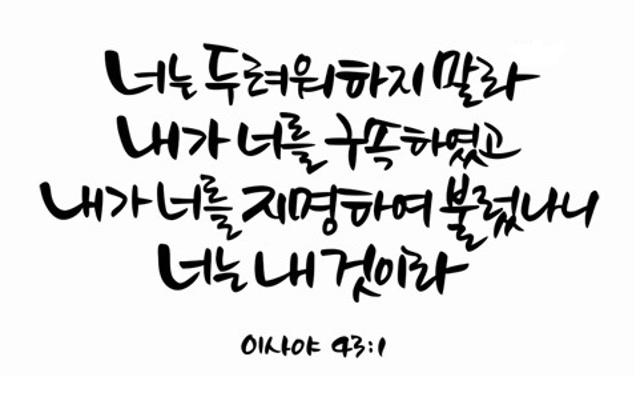 너는 두려워하지 말라
내가 너를 구속하였고
내가 너를 지명하여 불렀나니
너는 내 것이라
이사야 43:1